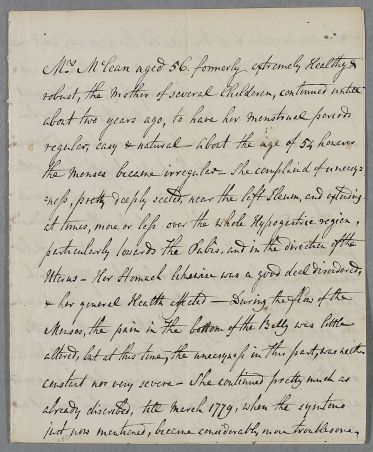 Mrs McLean aged 56. formerly extremely Healthy &
robust, the Mother of several Childeren, continued untill
about two years ago, to have her menstrual periods
regular, easy & natural – about the age of 54 however
the menses became irregular – She complaind of uneasy-
=ness, pretty deeply seated, near the left Ileum, and extending
at times, more or less over the whole Hypogastric region,
particularly towards the Pubis, and in the direction of the
Uterus – Her Stomach likewise was a good deal disordered,
& her general Health affected – During the flow of the
Menses, the pain in the bottom of the Belly was little
altered, but at this time, the uneasyness in this part, was neither
constant nor very severe – She continued pretty much as
already discribed, till March 1779, when the symtoms
just now mentioned, became considerably more troublesome,